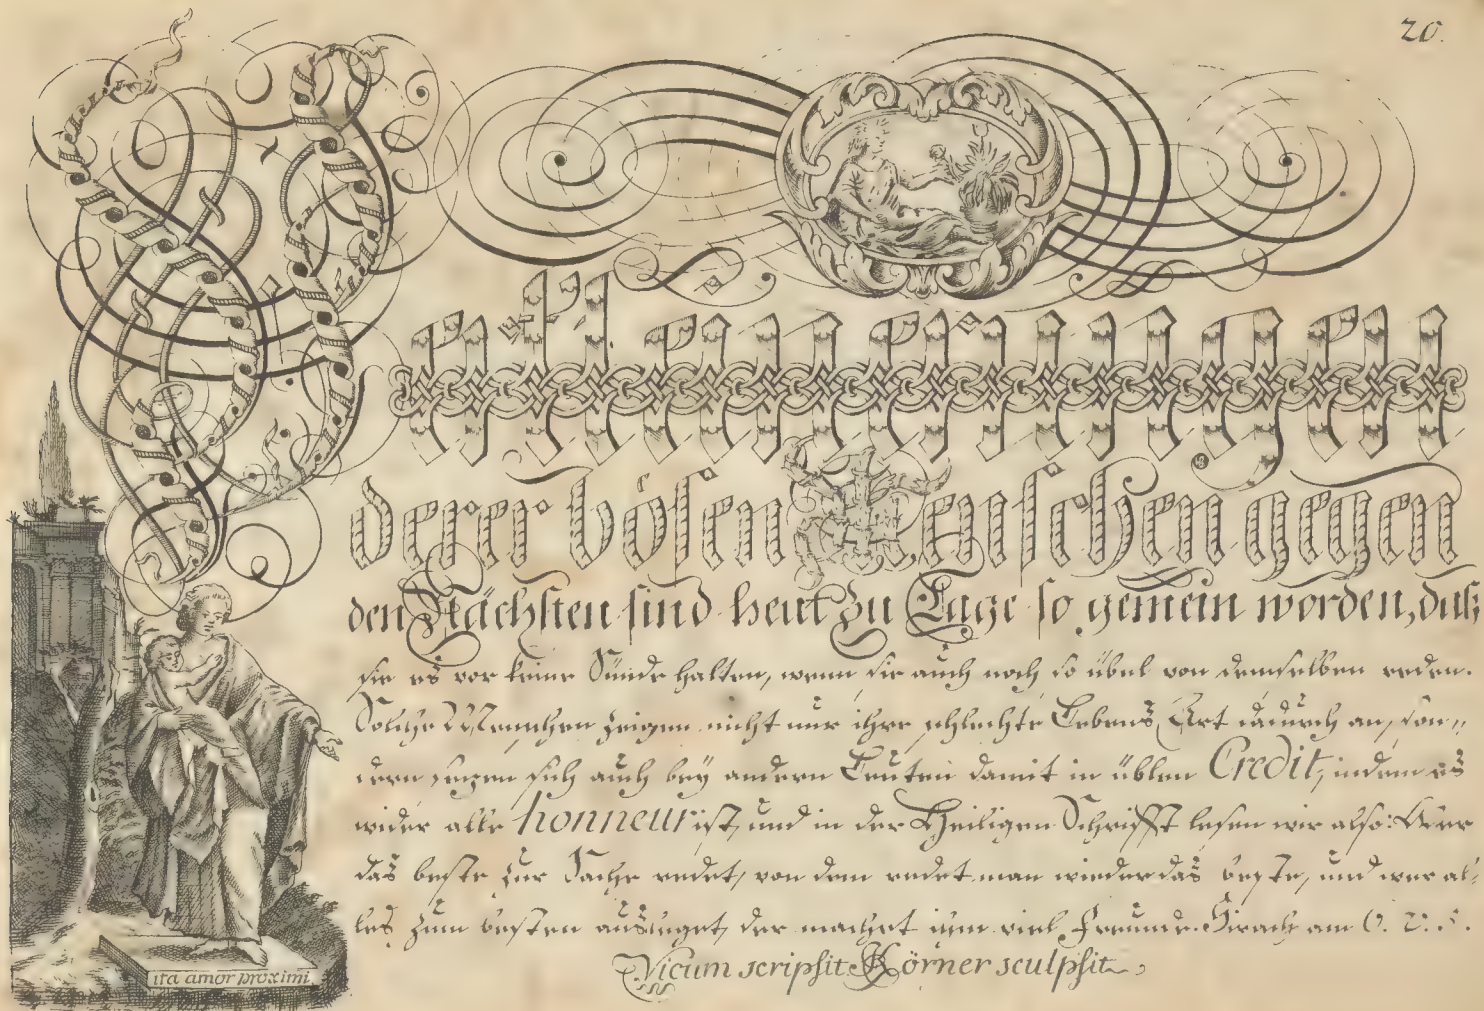 20.
Verkleinerungen
derer bösen Menschen gegen
den Nächsten sind heut zu Tage so gemein worden, daß
sie es vor keine Sünde halten, wenn sie auch noch so übel von demselben reden.
Solche Menschen zeigen nicht nur ihre schlechte Lebens Art dadurch an, son„
dern setzen sich auch bey andern Leuten damit in üblen Credit, indem es
wider alle honneur ist, und in der Heiligen Schrifft lesen wir also: Wer
das beste zur Sache redet, von dem redet man wieder das beste, und wer al„
les zum besten ausleget, der machet ihm viel Freunde. Sirach am 6. v. 5.
Vicum scripsit Körner sculpsit
ita amor proximi